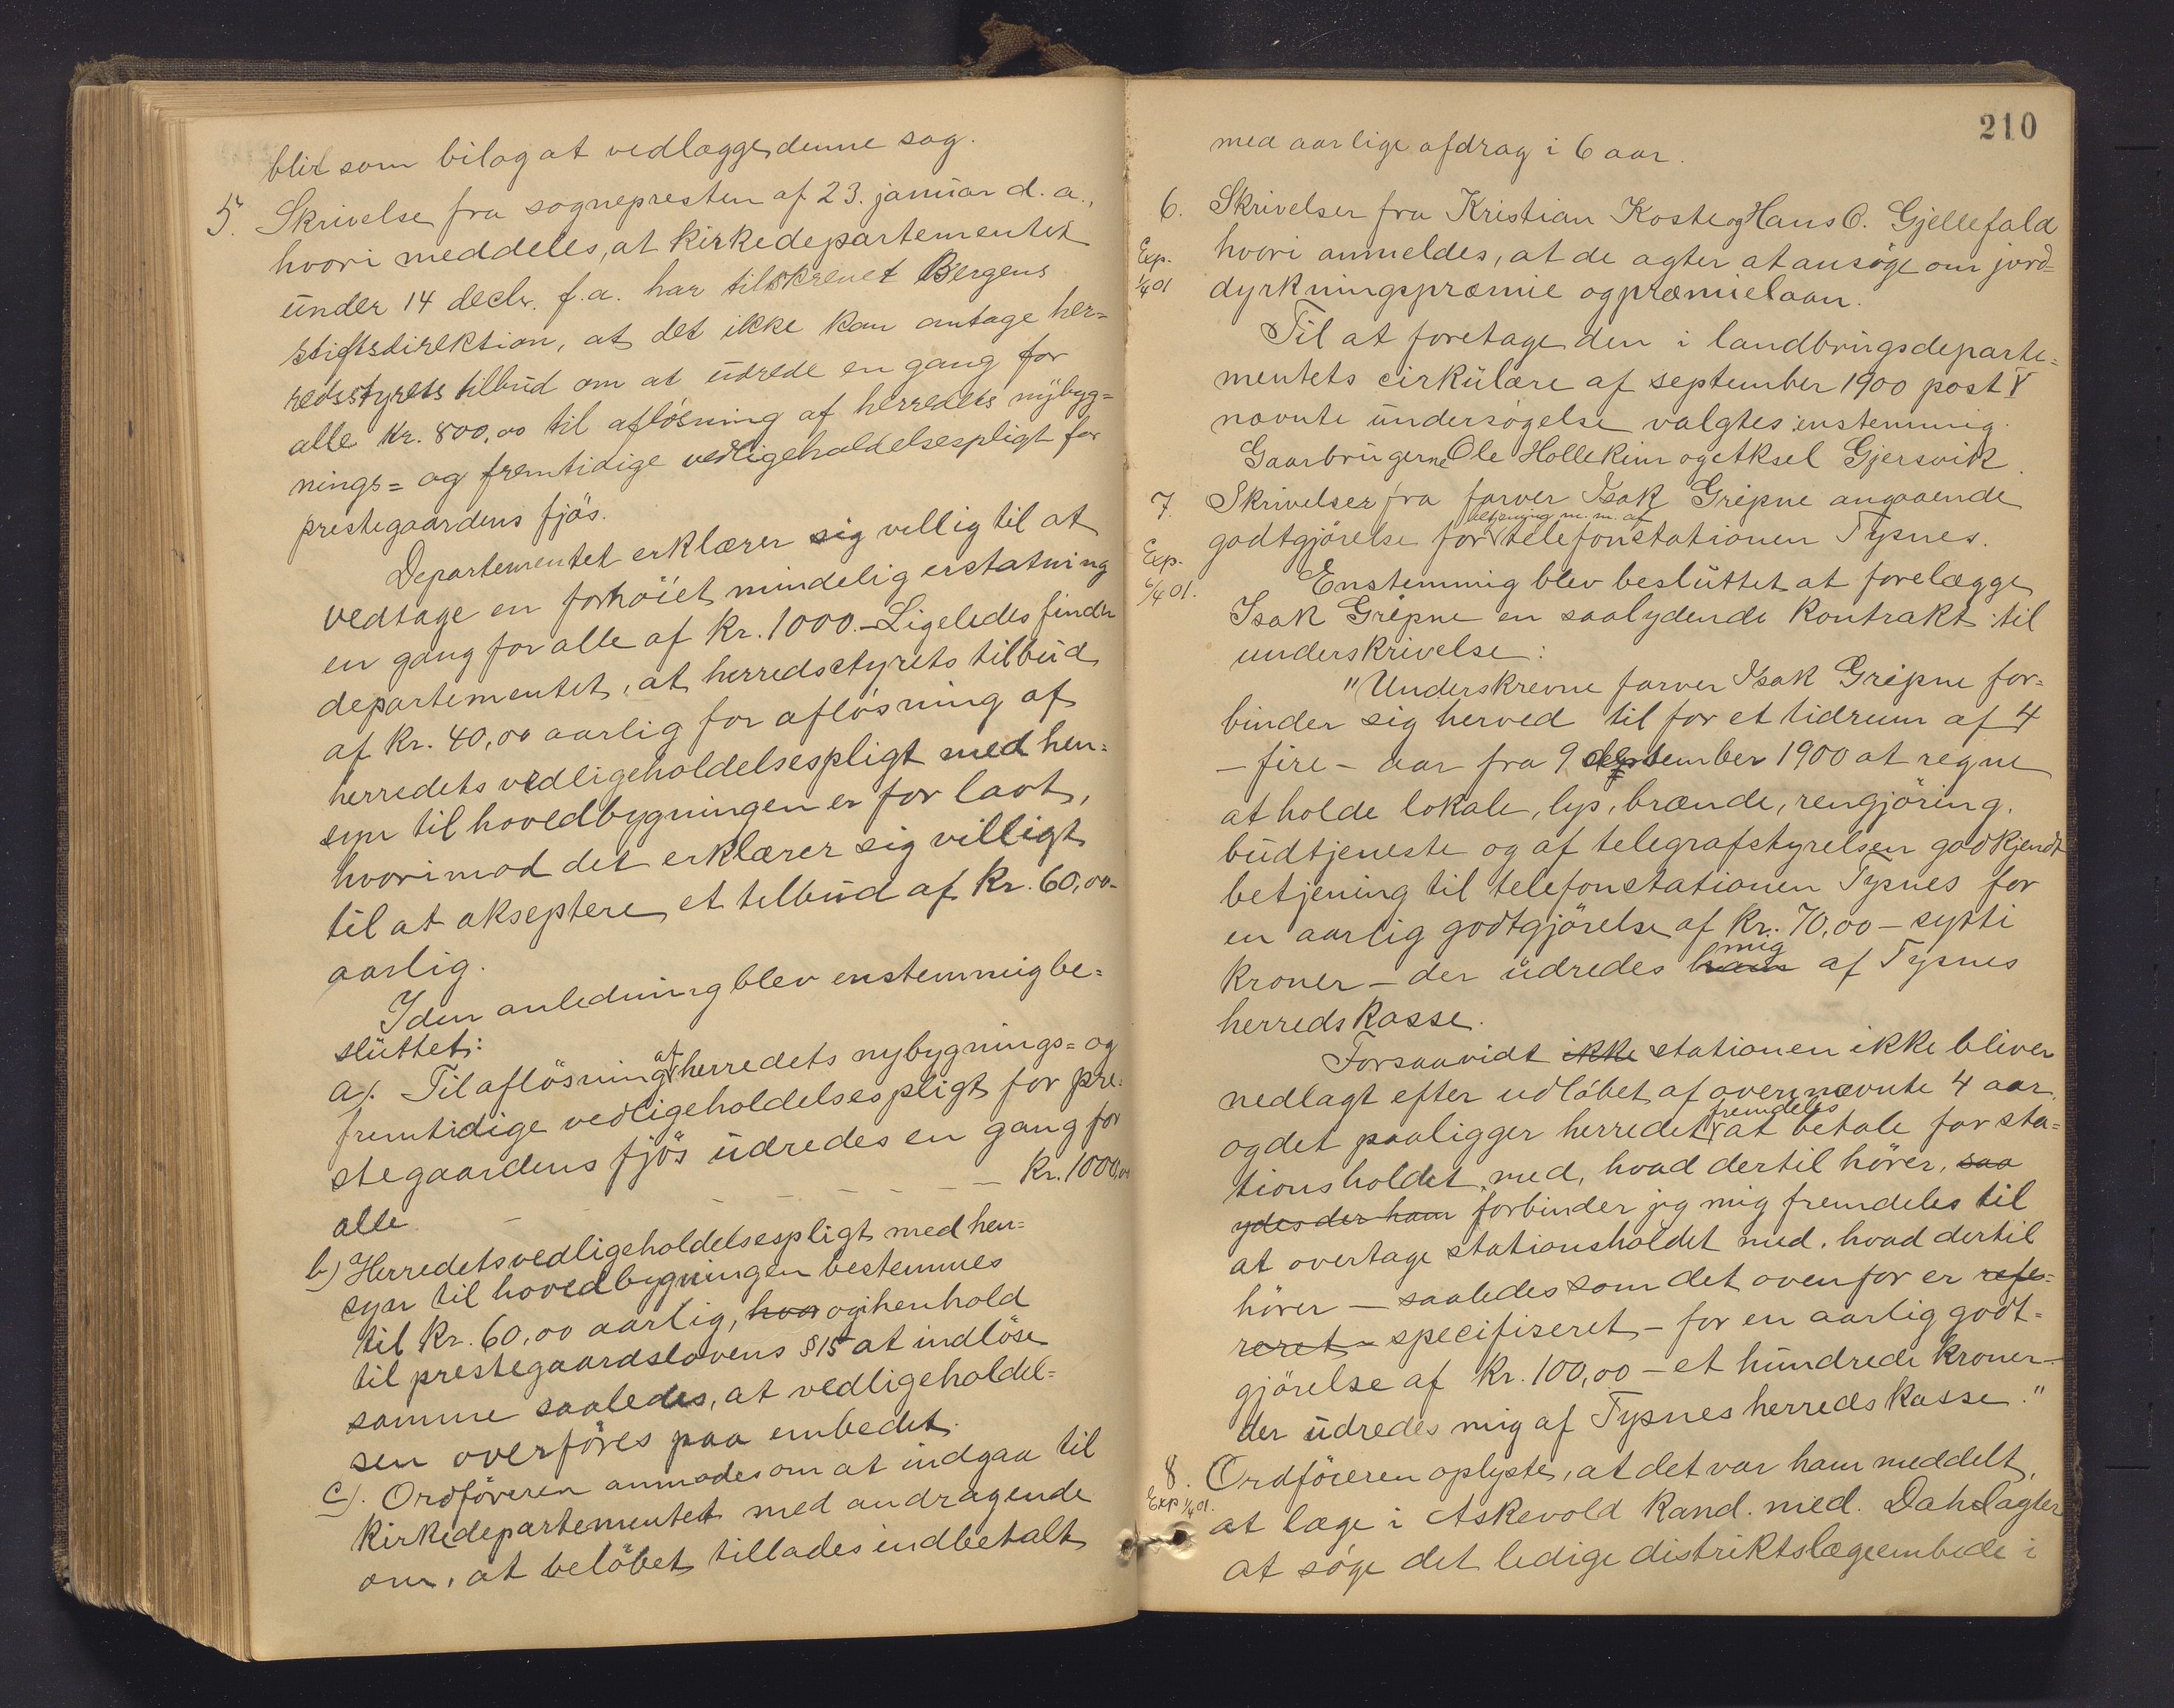 blir som bilag at vedlægge denne sag.
5. Skrivelse fra sognepresten af 23. januar d. a.,
hvori meddeles, at kirkedepartementet
under 14 decbr. f. a. har tilskrevet Bergens
stiftsdirektion, at det ikke kan antage her=
redsstyrets tilbud om at udrede en gang for
alle Kr. 800,00 til aflösning af herredets nybyg=
nings= og fremtidige vedligeholdelsespligt for
prestegaardens fjös.
Departementet erklærer sig villig til at
vedtage en forhöiet mindelig erstatning
en gang for alle af Kr. 1000.- Ligeledes finder
departementet, at herredsstyrets tilbud
af Kr. 40,00 aarlig for aflösning af
herredets vedligeholdelsespligt med hen=
syn til hovedbygningen er for lavt,
hvorimod det erklærer sig villigt
til at akseptere et tilbud af Kr. 60,00-
aarlig.
I den anledning blev enstemmig be=
sluttet:
a). Til aflösning af herredets nybygnings= og
fremtidige vedligeholdelsespligt for pre=
stegaardens fjös udredes en gang for
alle - - - - - - Kr. 1000,00
b) Herredets vedligeholdelsespligt med hen=
syn til hovedbygningen bestemmes
til Kr. 60,00 aarlig, hvor og i henhold
til prestegaardslovens § 15 at indlöse
samme saaledes, at vedligeholdel=
sen overföres paa embedet.
c). Ordföreren anmodes om at indgaa til
kirkedepartementet med andragende
om, at belöbet tillades indbetalt
210
med aarlige afdrag i 6 aar.
6. Skrivelser fra Kristian Koste og Hans O. Gjellefald
Exp. 1/4 01
hvori anmeldes, at de agter at ansöge om jord=
dyrkningspræmie og præmielaan.
Til at foretage den i landbrugsdeparte=
mentets cirkulære af september 1900 post V
nævnte undersögelse valgtes enstemmig
Gaarbrugerne Ole Hollekim og Aksel Gjersvik.
7. Skrivelser fra farver Isak Gripne angaaende
betjening m. m. af
godtgjörelse for telefonstationen Tysnes.
Exp. 6/4 01.
Enstemmig blev besluttet at forelægge
Isak Gripne en saalydende kontrakt til
underskrivelse:
"Underskrevne farver Isak Gripne for=
binder sig herved til for et tidrum af 4
- fire - aar fra 9 september 1900 at regne
at holde lokale, lys, brænde, rengjöring,
budtjeneste og af telegrafstyrelsen godkjendt
betjening til telefonstationen Tysnes for
en aarlig godtgjörelse af Kr. 70,00 - sytti
mig
kroner - der udredes ham af Tysnes
herredskasse.
Forsaavidt ikke stationen ikke bliver
nedlagt efter udlöbet af ovennævnte 4 aar,
fremdeles
og det paaligger herredet at betale for sta=
tionsholdet med, hvad dertil hörer, saa
ydes der ham forbinder jeg mig fremdeles til
at overtage stationsholdet med, hvad dertil
hörer - saaledes som det ovenfor er refe=
reret - specifiseret - for en aarlig godt=
gjörelse af Kr. 100,00 - et hundrede kroner -
der udredes mig af Tysnes herredskasse."
8. Ordföreren oplyste, at det var ham meddelt,
Exp 1/4 01.
at læge i Askevold kand. med. Dahl agter
at söge det ledige distriktslægeembede i